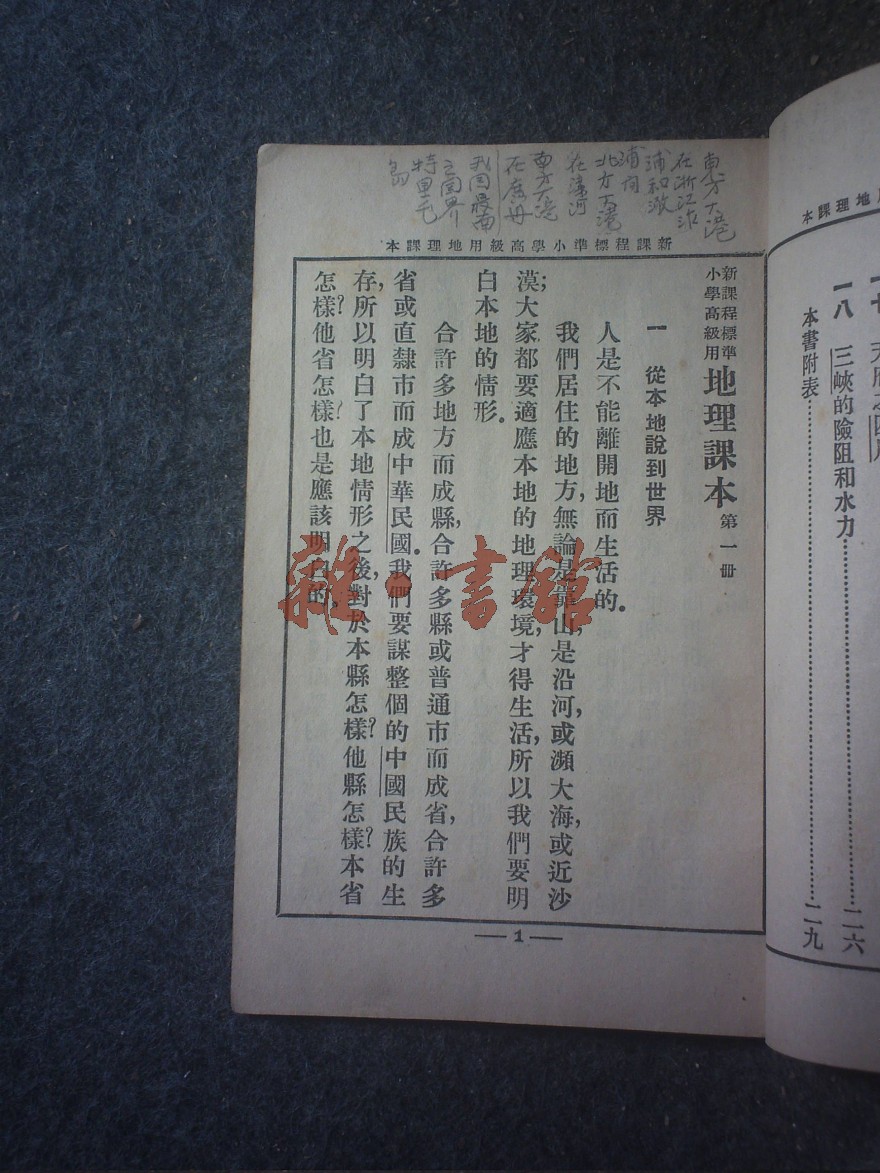 地理課本
一八 三峽的險阻和水力……二六
本書附表……二九
東方大港
在浙江乍
浦和澉
浦间
北方大港
在灤河
在廣州
我国最南
之国界
特里屯
島
新課程標準小學高級用地理課本
新課程標準
小學高級用
地理課本 第一冊
一 從本地說到世界
人是不能離開地而生活的。
我們居住的地方，無論是靠山，是沿河，或瀕大海，或近沙
漠；大家都要適應本地的地理環境，才得生活，所以我們要明
白本地的情形。
合許多地方而成縣，合許多縣或普通市而成省，合許多
省或直隸市而成中華民國。我們要謀整個的中國民族的生
存，所以明白了本地情形之後，對於本縣怎樣？他縣怎樣？本省
怎樣？他省怎樣？也是應該明白的。
— 1 —
雜·書館